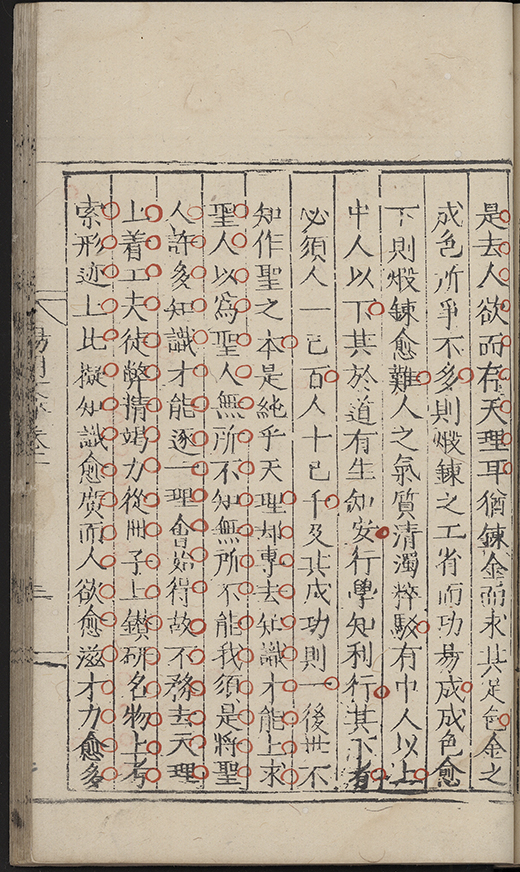 是去人欲而存天理耳猶鍊金而求其足色金之
成色所爭不多則煅鍊之工省而功易成成色愈
下則煅鍊愈難人之氣質清濁粹駁有中人以上
中人以下其於道有生知安行學知利行其下者
必須人一己百人十己千及其成功則一後世不
知作聖之本是純乎天理却專去知識才能上求
聖人以為聖人無所不知無所不能我須是將聖
人許多知識才能逐一理會始得故不務去天理
上着工夫徒弊精竭力從冊子上鑚研名物上考
索形迹上比擬知識愈廣而人欲愈滋才力愈多